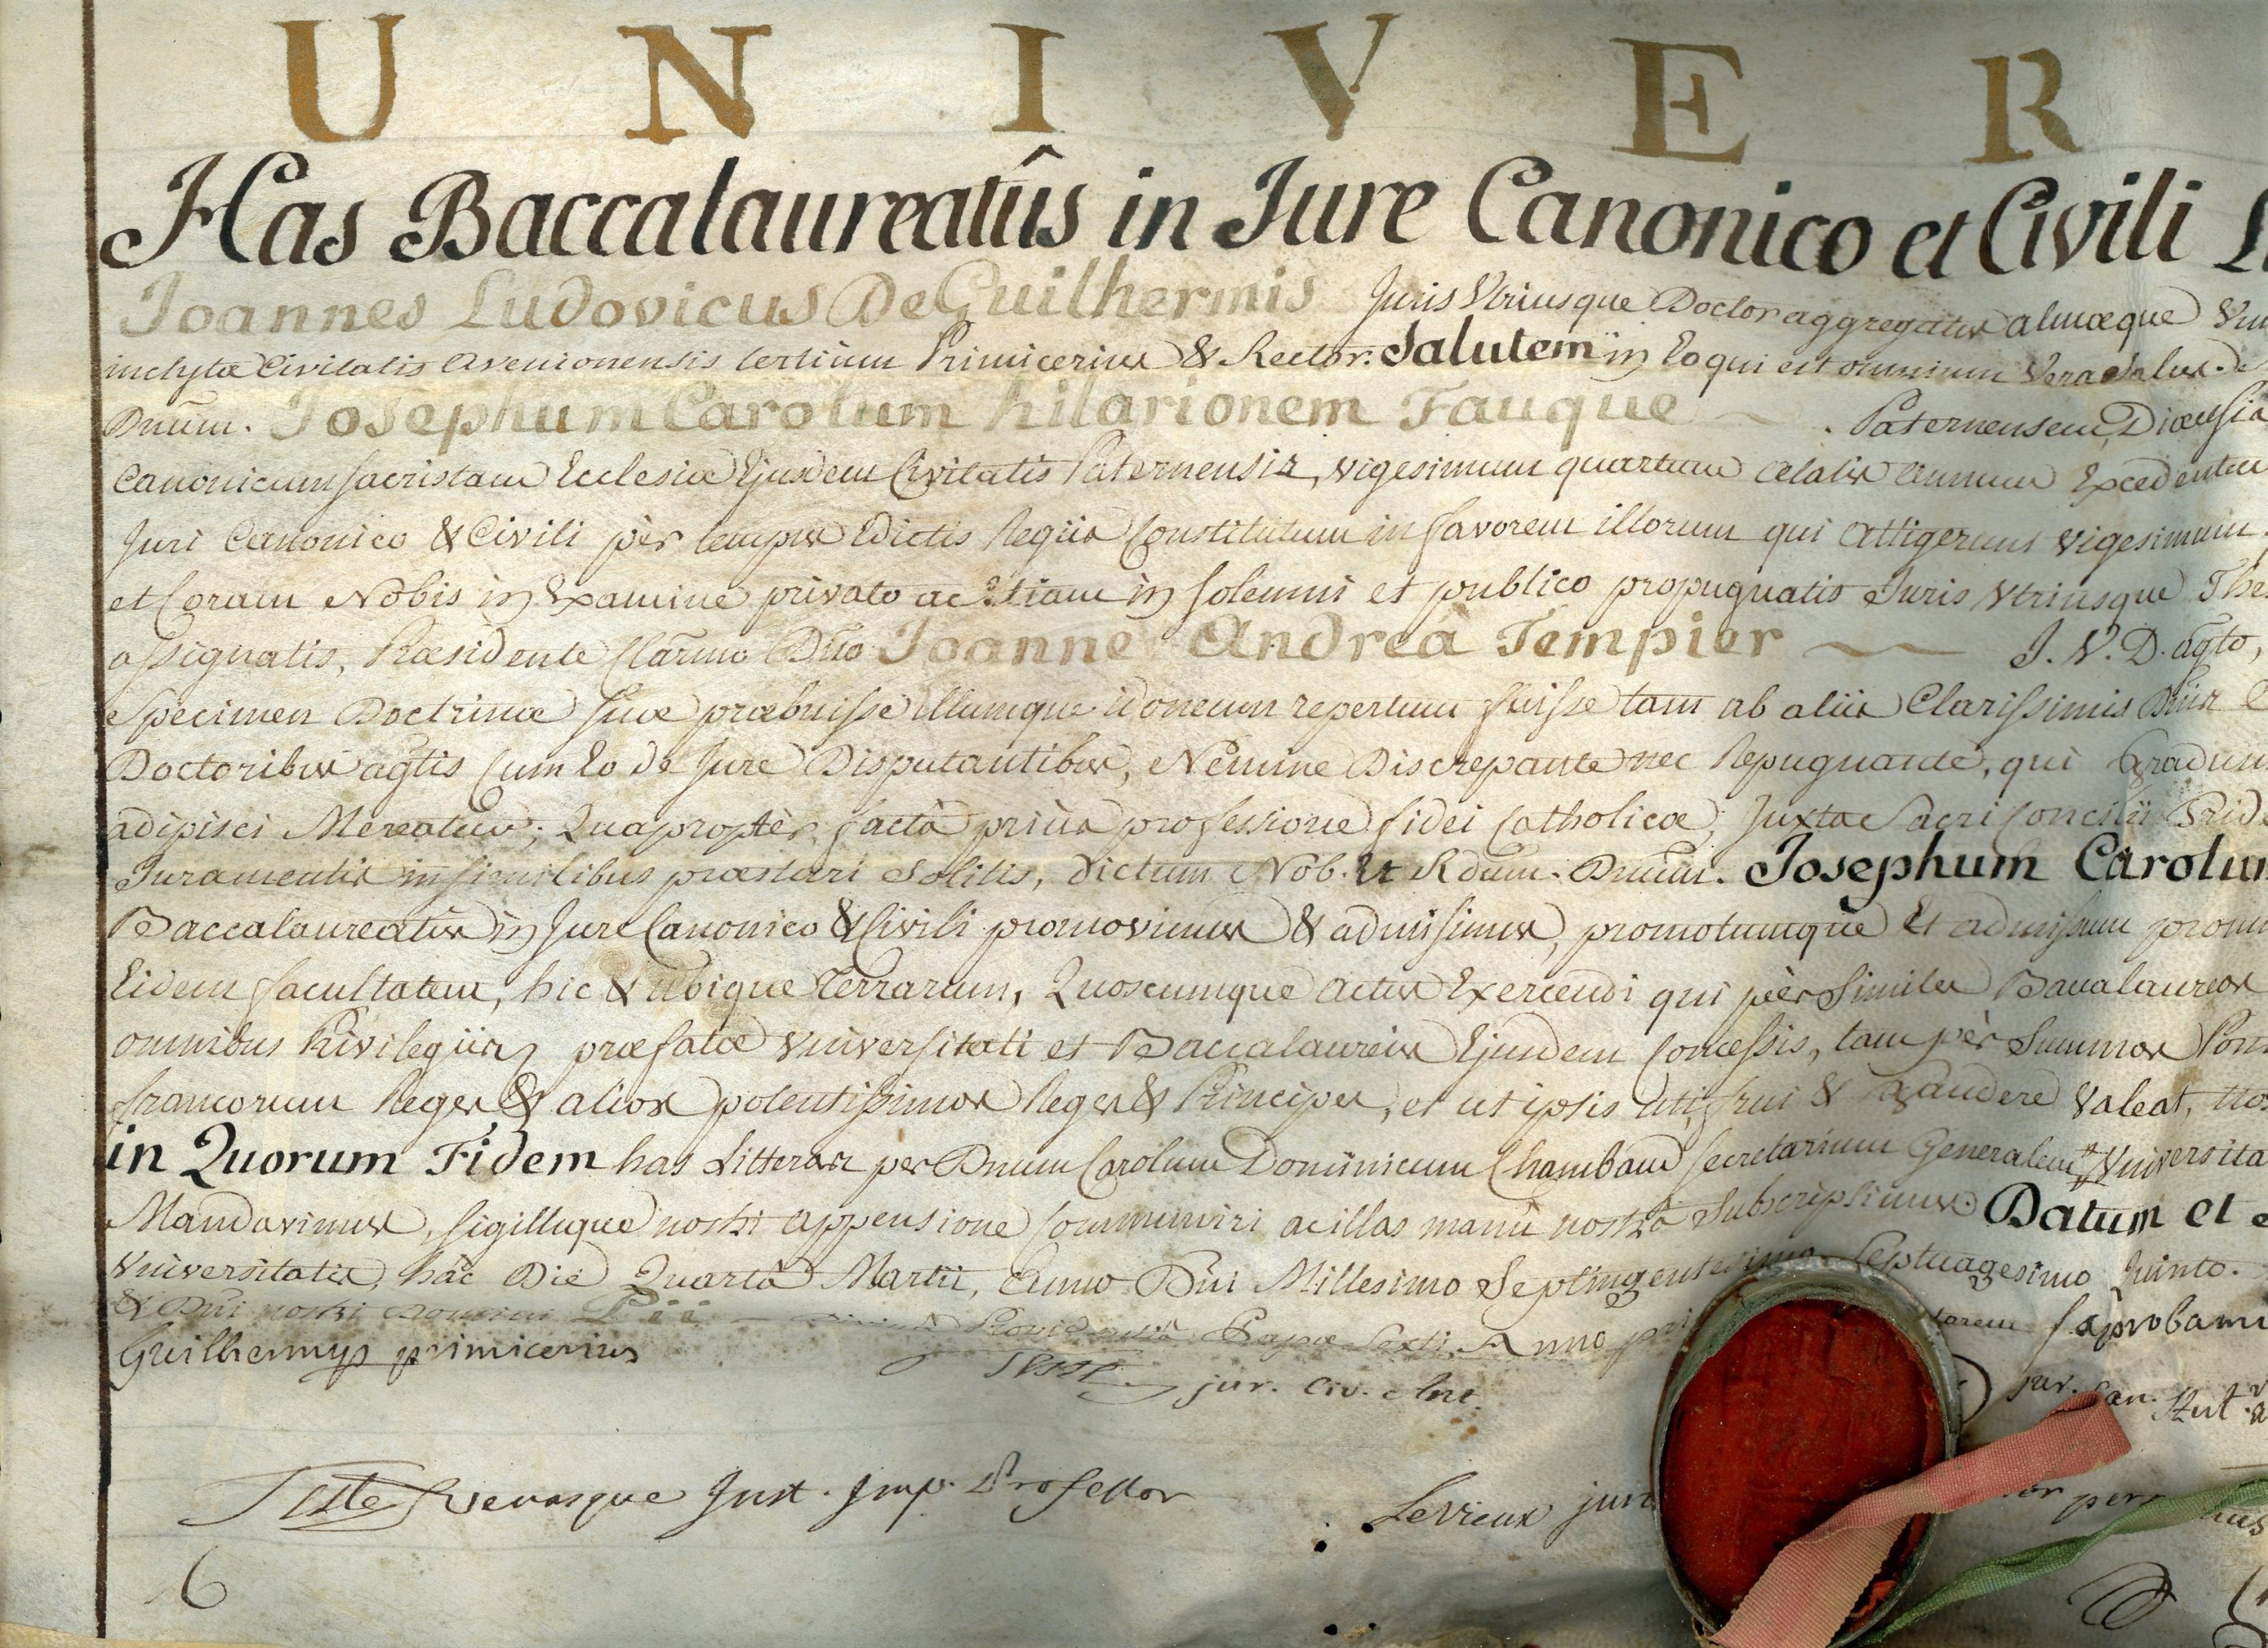 U N I V E R
Has Baccalaureatûs in Jure Canonico et Civili
Joannes Ludovicus De Guilhermis Juris Utriusque Doctor aggregatus almæque
inclytæ Civitatis Avenionensis tertium Primicerius & Rector. Salutem in Eo qui est omnium Vera Salus.
Dnum. Josephum Carolum hilarionem Fauque Paternensem, Diœcesis
Canonicum sacristam Ecclesiæ Ejusdem Civitatis Paternensis, vigesimum quartum Ætatis annum Excedentem
Juri Canonico & Civili pèr tempus Edictis Regiis Constitutum in favorem illorum qui attigerunt vigesimum
et Coram Nobis in Examine privato ac Etiam in solemni et publico propugnatis Juris Utriusque
assignatis, Præsidente Clarmo Dño Joanne Andreâ Tempier J. V. D. agto,
specimen Doctrinæ suæ præbuisse illumque idoneum repertum fuisse tam ab aliis Clarissimis Dnis
Doctoribus agtis Cum Eo de Jure Disputantibus, Nemine Discrepante nec Repugnante, qui Gradum
adipisci Mereatur; Quapropter, factâ priùs professione fidei Catholicæ, Juxta Sacri Concilii
Juramentis in similibus præstari solitis, dictum Nob. Et Rdum. Dnum. Josephum Carolum
Baccalaureatus in Jure Canonico & Civili promovimus & admisimus, promotumque Et admissum
Eidem facultatem, hic & ubique Terrarum, Quoscumque actus Exercendi qui pèr similes Baccalaureos
omnibus Privilegiis præfatæ Universitati et Baccalaureis Ejusdem Concessis, tam pèr Summos
francorum Reges & alios potentissimos Reges & Principes, et ut ipsis uti, frui & gaudere Valeat,
in Quorum Fidem has Litteras per Dnum Carolum Dominicum Chambaud secretarium Generalem
Mandavimus, sigillique nostri appensione Communiri ac illas manû nostrâ subscripsimus. Datum et
Universitatis, hâc Die Quartâ Martii, Anno Dñi Millesimo Septingentesimo Septuagesimo Quinto.
& Dñi nostri Domini Pii Providentiâ Papæ Sexti Anno
Guilhermis primicerius jur. Civ. Ant.
Teste Levieux